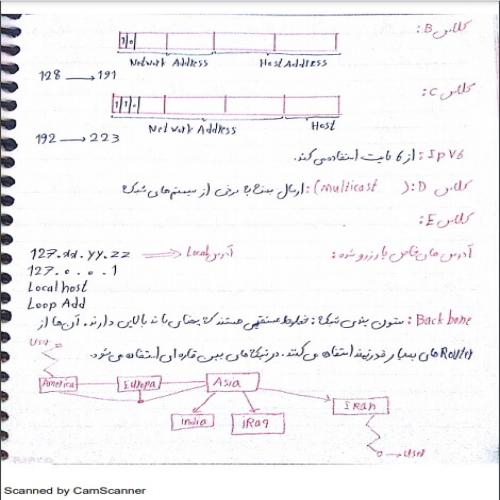 کلاس B:
1 0
Network Address Host Address
128 → 191
کلاس C:
1 1 0
Network Address Host
192 → 223
IPV6: از 6 بایت استفاده می کند.
کلاس D: (multicast): ارسال بسته با برخی از سیستم های شبکه
کلاس E:
آدرس های خاص یا رزرو شده:
127.xx.yy.zz ⇒ آدرس Local
127.0.0.1
Local host
Loop Add
Back bone: ستون بندی شبکه: خطوط مستقیمی هستند که پهنای باند بالایی دارند. آن ها از
Router های بسیار قدرتمند استفاده می کنند. در شبکه های بین قاره ای استفاده می شود
User
America Europa Asia
India IRaq IRan
User
Scanned by CamScanner